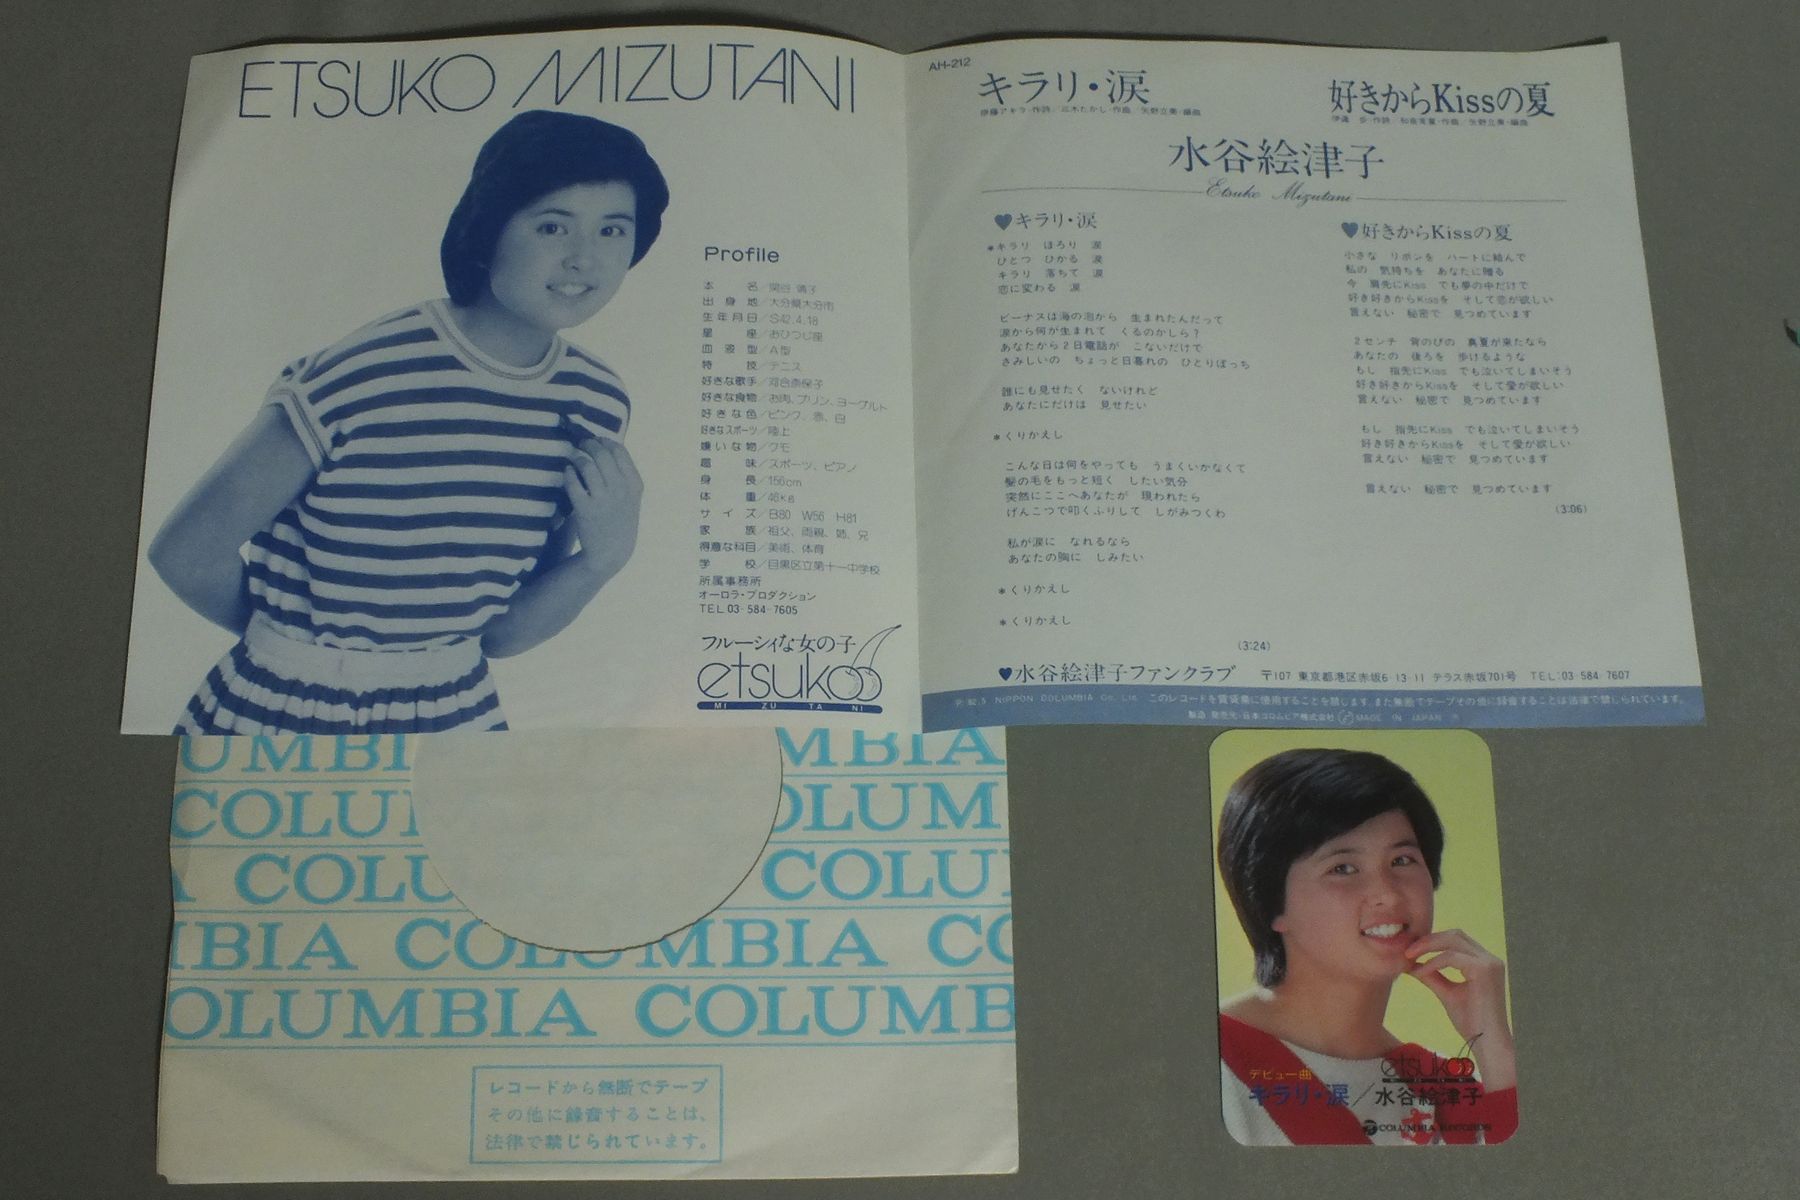 ETSUKO MIZUTANI
Profile
本名／関谷 靖子
出身地／大分県大分市
生年月日／S42.4.18
星座／おひつじ座
血液型／A型
特技／テニス
好きな歌手／河合奈保子
好きな食物／お肉、プリン、ヨーグルト
好きな色／ピンク、赤、白
好きなスポーツ／陸上
嫌いな物／クモ
趣味／スポーツ、ピアノ
身長／156cm
体重／46kg
サイズ／B80 W56 H81
家族／祖父、両親、姉、兄
得意な科目／美術、体育
学校／目黒区立第十一中学校
所属事務所
オーロラ・プロダクション
TEL 03-584-7605
フルーシィな女の子
etsuko
MIZUTANI
AH-212
キラリ・涙
伊藤アキラ・作詩／三木たかし・作曲／矢野立美・編曲
好きからKissの夏
伊達 歩・作詩／和泉常寛・作曲／矢野立美・編曲
水谷絵津子
Etsuko Mizutani
♥キラリ・涙
*キラリ ほろり 涙
ひとつ ひかる 涙
キラリ 落ちて 涙
恋に変わる 涙
ビーナスは海の泡から 生まれたんだって
涙から何が生まれて くるのかしら?
あなたから2日電話が こないだけで
さみしいの ちょっと日暮れの ひとりぼっち
誰にも見せたく ないけれど
あなたにだけは 見せたい
*くりかえし
こんな日は何をやっても うまくいかなくて
髪の毛をもっと短く したい気分
突然にここへあなたが 現われたら
げんこつで叩くふりして しがみつくわ
私が涙に なれるなら
あなたの胸に しみたい
*くりかえし
*くりかえし
(3:24)
♥好きからKissの夏
小さな リボンを ハートに結んで
私の 気持ちを あなたに贈る
今 肩先にKiss でも夢の中だけで
好き好きからKissを そして恋が欲しい
言えない 秘密で 見つめています
2センチ 背のびの 真夏が来たなら
あなたの 後ろを 歩けるような
もし 指先にKiss でも泣いてしまいそう
好き好きからKissを そして愛が欲しい
言えない 秘密で 見つめています
もし 指先にKiss でも泣いてしまいそう
好き好きからKissを そして愛が欲しい
言えない 秘密で 見つめています
言えない 秘密で 見つめています
(3:06)
♥水谷絵津子ファンクラブ 〒107 東京都港区赤坂6-13-11 テラス赤坂701号 TEL:03-584-7607
Ⓟ'82.5 NIPPON COLUMBIA Co., Ltd. このレコードを賃貸業に使用することを禁じます。また無断でテープその他に録音することは法律で禁じられています。
製造・発売元・日本コロムビア株式会社 MADE IN JAPAN
UMBIA MBIA
COLU OLUM
A COLU COLU
IBIA COLUMBIA CO
OLUMBIA COLUMB
レコードから無断でテープ
その他に録音することは、
法律で禁じられています。
etsuko
MIZUTANI
デビュー曲
キラリ・涙／水谷絵津子
COLUMBIA RECORDS